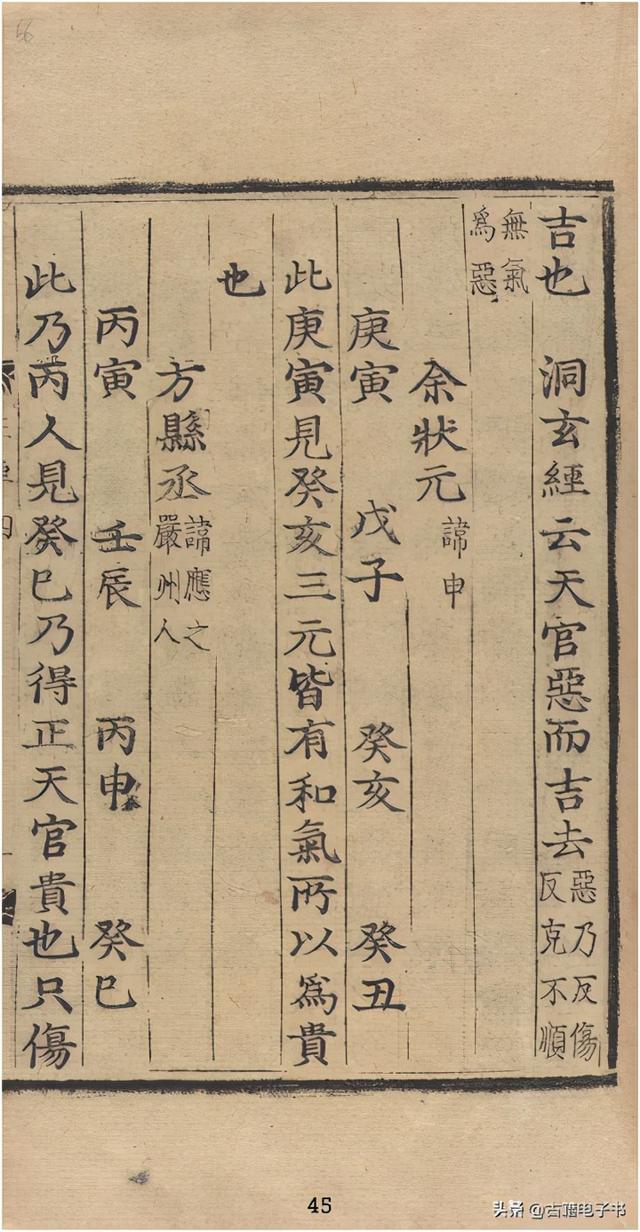 吉也　洞玄經云天官惡而吉去惡乃反傷反克不順
無氣為惡
余狀元諱申
庚寅　戊子　癸亥　癸丑
此庚寅見癸亥三元皆有和氣所以為貴
也
方縣丞諱應之嚴州人
丙寅　壬辰　丙申　癸巳
此乃丙人見癸巳乃得正天官貴也只傷
45
头条 @古籍电子书